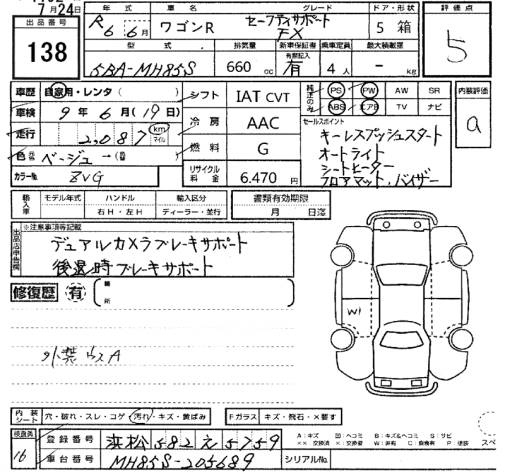 7月24日
出品番号 138
年式 車名 グレード ドア・形状 評価点
R6 6月 ワゴンR セーフティサポート FX 5 箱 5
型式 排気量 新車保証書 乗車定員 最大積載量
有無記入
5BA-MH85S 660cc 有 4人 - kg
車歴 自家用・レンタ( )
シフト IAT CVT
純正のみ PS PW AW SR
ABS エアB TV ナビ
内装評価 a
車検 9年6月(19日)
冷房 AAC
セールスポイント
キーレスプッシュスタート
オートライト
シートヒーター
フロアマット、バイザー
走行 2,087 km マイル
燃料 G
色 ベージュ
カラーNo. ZVG
リサイクル料金 6.470円
輸入車 モデル年式 ハンドル 輸入区分
右H・左H ディーラー・並行
書類有効期限
月 日迄
出品店申告欄
※注意事項等記載
デュアルカメラブレーキサポート
後退時ブレーキサポート
修復歴 有 箇所
W1
外装ウスA
内装シート 穴・破れ・スレ・コゲ・汚れ・キズ・黄ばみ
Fガラス キズ・飛石・X要す
A:キズ B:キズ&ヘコミ S:サビ
検査員 16
登録番号 浜松582え5759
車台番号 MH85S-205689
シリアルNo.